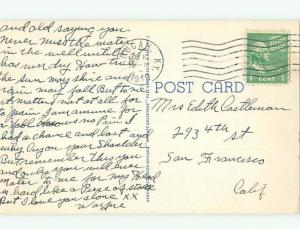 and old saying you
Never miss the water
in the well untill it
has run dry How true
the sun may shine and
rain may fall But to me
it matters not at all for
to pain I am immune for
I fall no Pain I
had a chance and lost and
why cry on your Shoulder
But remember this you
and only you will ever
mater to me for my Head
is hard like a Piece of stone
But I love you alone xx
Wayne
KY.
194
1 CENT 1
POST CARD
Mrs Edith Castleman
293 4th st
San Francisco
Calif